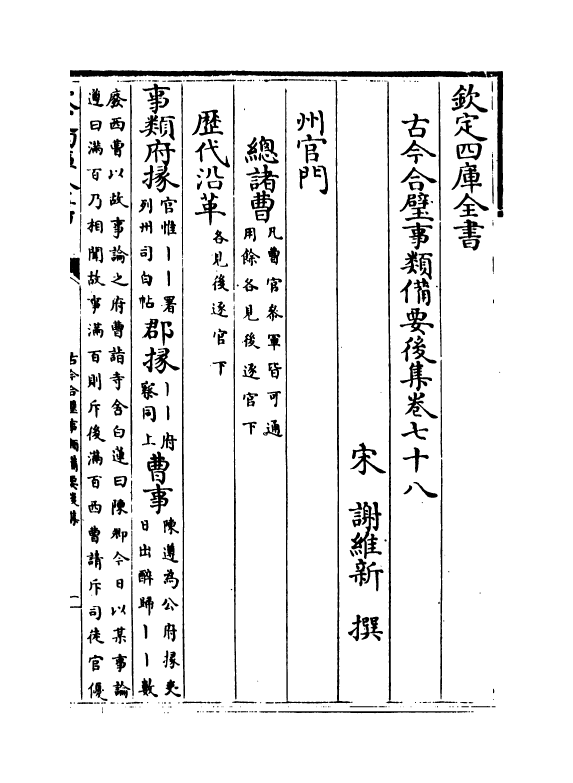 欽定四庫全書
古今合璧事類備要後集卷七十八
宋 謝維新 撰
州官門
總諸曹 凡曹官叅軍皆可通
用餘各見後逐官下
歴代沿革 各見後逐官下
事類府掾 官惟丨丨署
列州司白帖 郡掾 丨丨府
同上 曹事 陳遵為公府掾
日出醉歸丨丨數
廢西曹以故事論之府曹詣寺舍白蓮曰陳卿今日以某事論
遵曰滿百乃相聞故事滿百則斥後滿百西曹請斥司徒官優